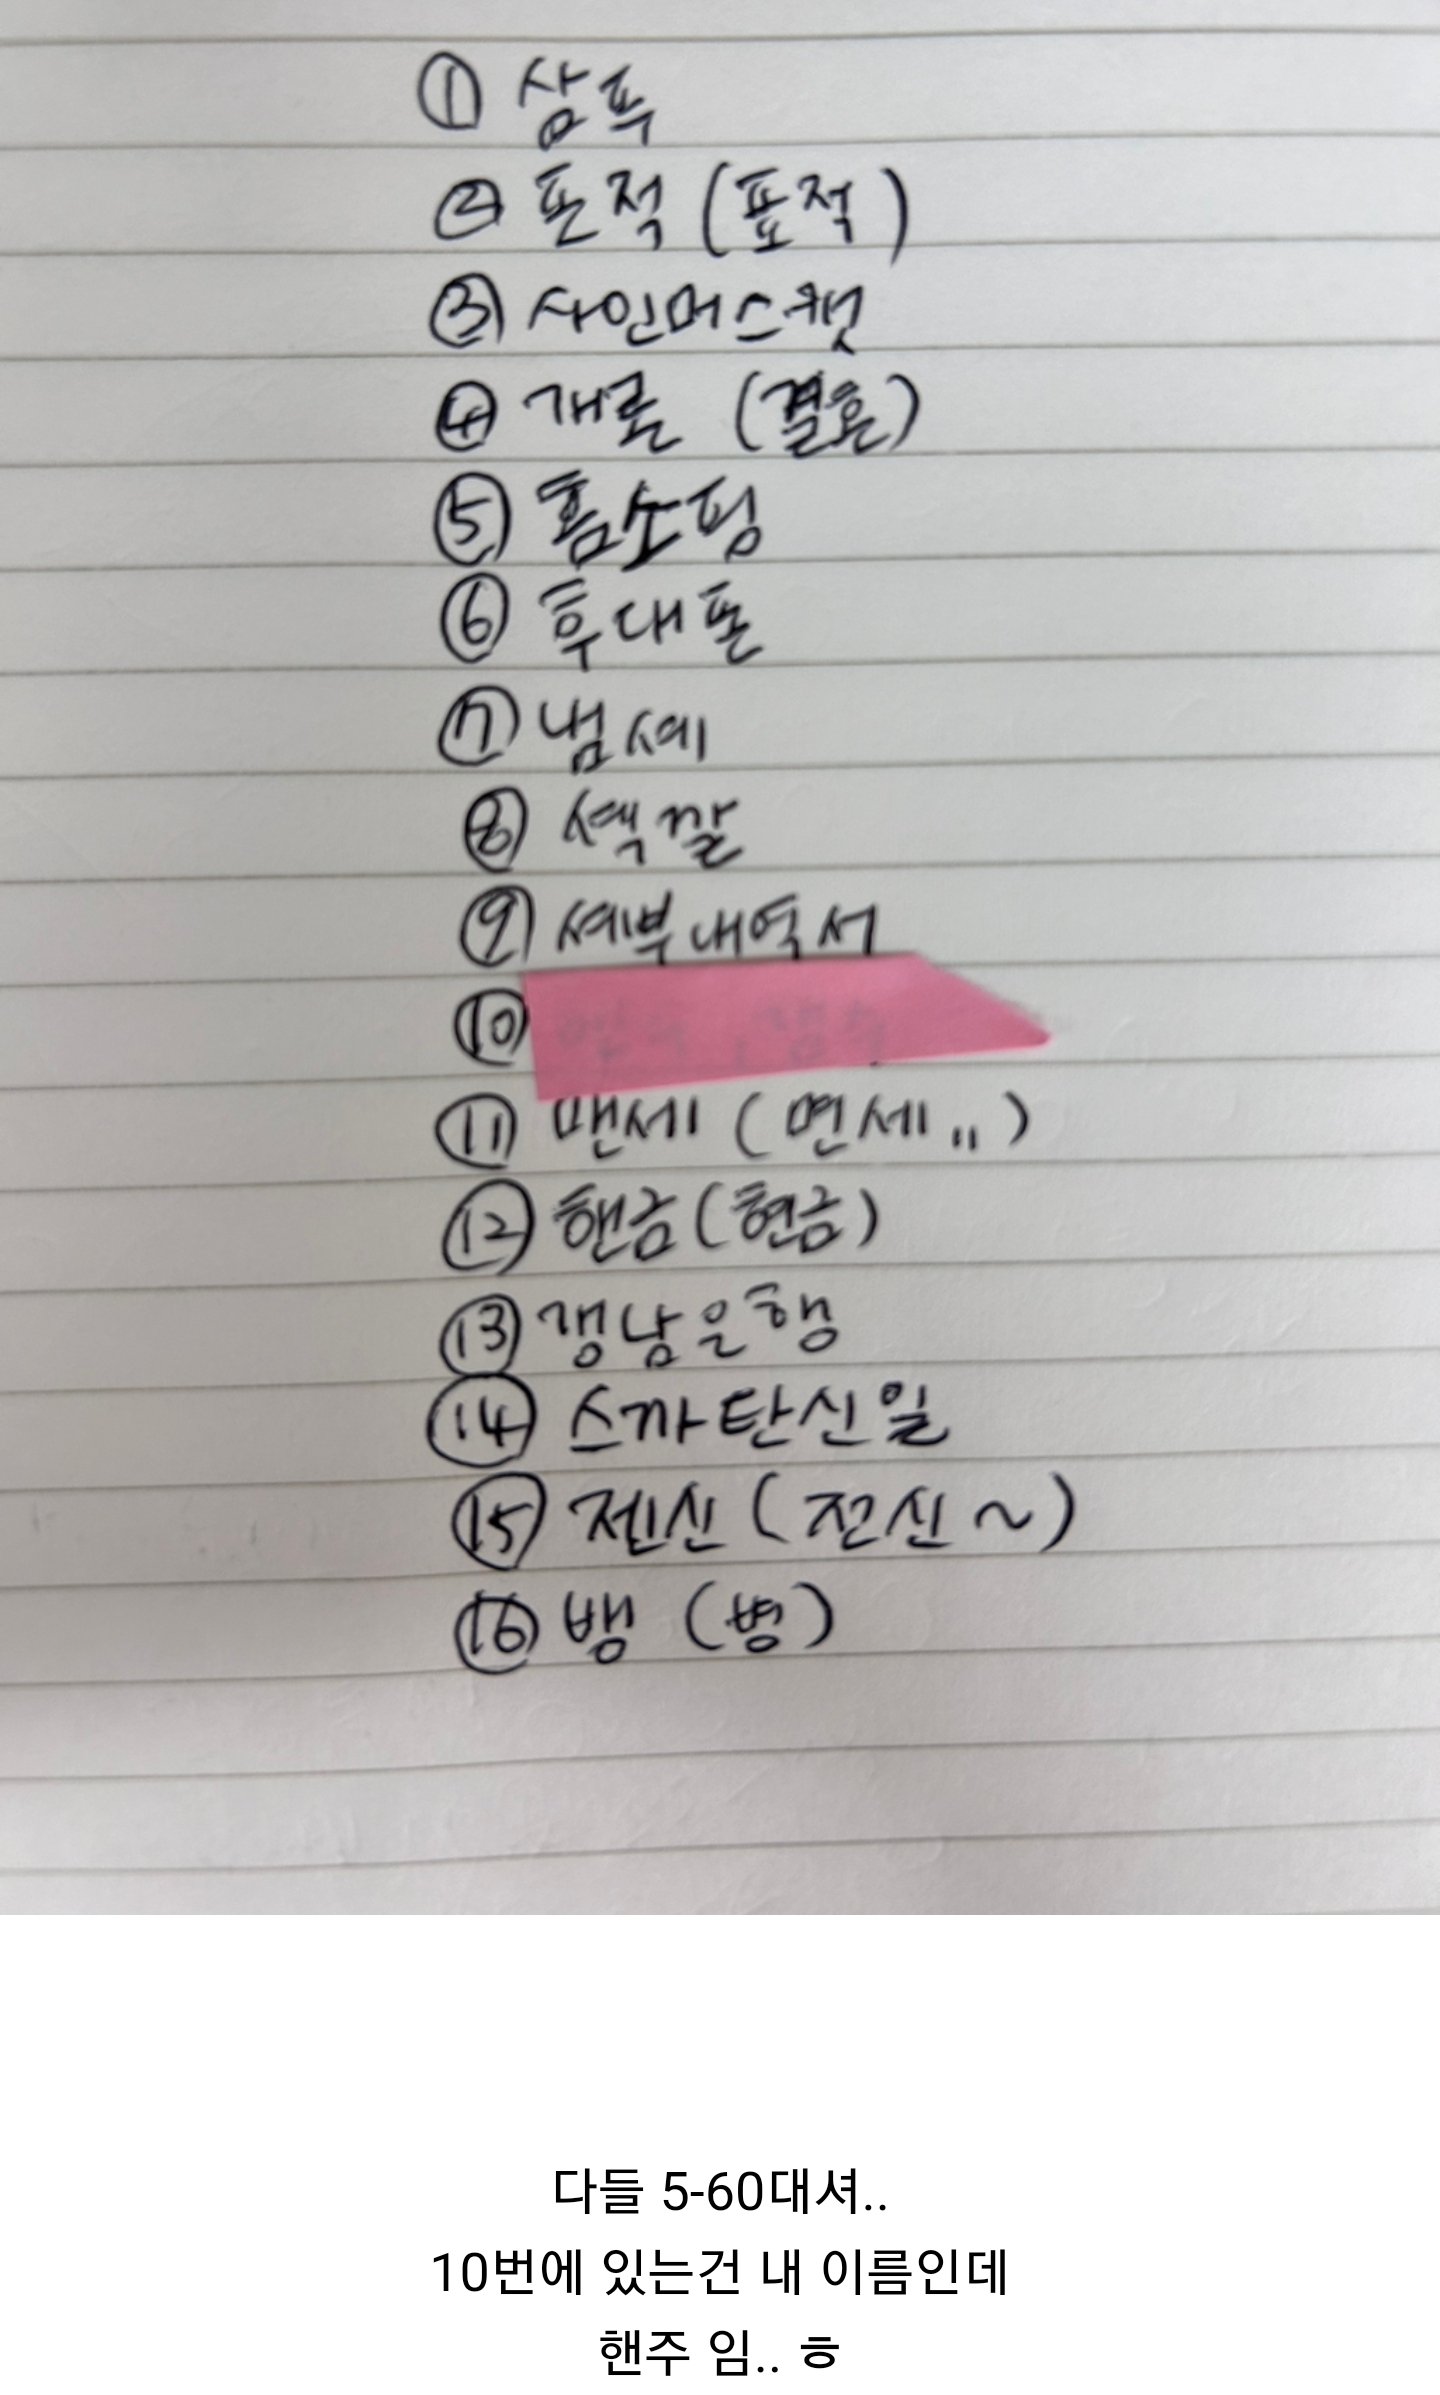 ① 삼푸
② 폰적 (표적)
③ 사인머스캣
④ 개론 (결혼)
⑤ 홈소핑
⑥ 후대폰
⑦ 넘셰
⑧ 셱깔
⑨ 셰부내역서
⑩
⑪ 맨세 (면세..)
⑫ 핸금 (현금)
⑬ 갱남은행
⑭ 스까탄신일
⑮ 젠신 (전신~)
⑯ 뱅 (병)
다들 5-60대셔..
10번에 있는건 내 이름인데
핸주 임.. ㅎ